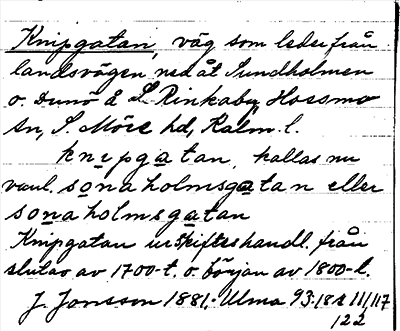 Knipgatan, väg som leder från
landsvägen ned åt Sundholmen
o. Dunö å L. Rinkaby, Hossmo
sn, S. Möre hd, Kalm. l.
knipgatan, kallas nu
vanl. sonaholmsgatan eller
sonaholmsgatan
Knipgatan i skiftesshandl. från
slutav av 1700-t. o. början av 1800-t.
J. Jonsson 1881. Ulma 93:18 s 11/117
122